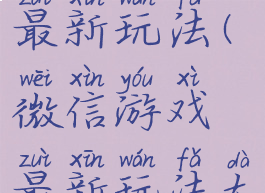 zuì xīn wán fǎ
最新玩法(
wēi xìn yóu xì
微信游戏
zuì xīn wán fǎ dà
最新玩法大